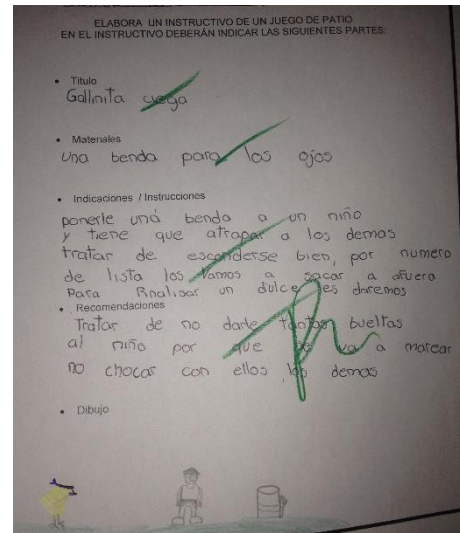 ELABORA UN INSTRUCTIVO DE UN JUEGO DE PATIO.
EN EL INSTRUCTIVO DEBERÁN INDICAR LAS SIGUIENTES PARTES:
• Titulo
Gallinita ciega
• Materiales
Una benda para los ojos
• Indicaciones / Instrucciones
ponerle una benda a un niño
y tiene que atrapar a los demas
tratar de esconderse bien, por numero
de lista los vamos a sacar a afuera
Para finalisar un dulce les daremos
• Recomendaciones
Tratar de no darle tantas bueltas
al niño por que se va a marear
no chocar con ellos los demas
• Dibujo